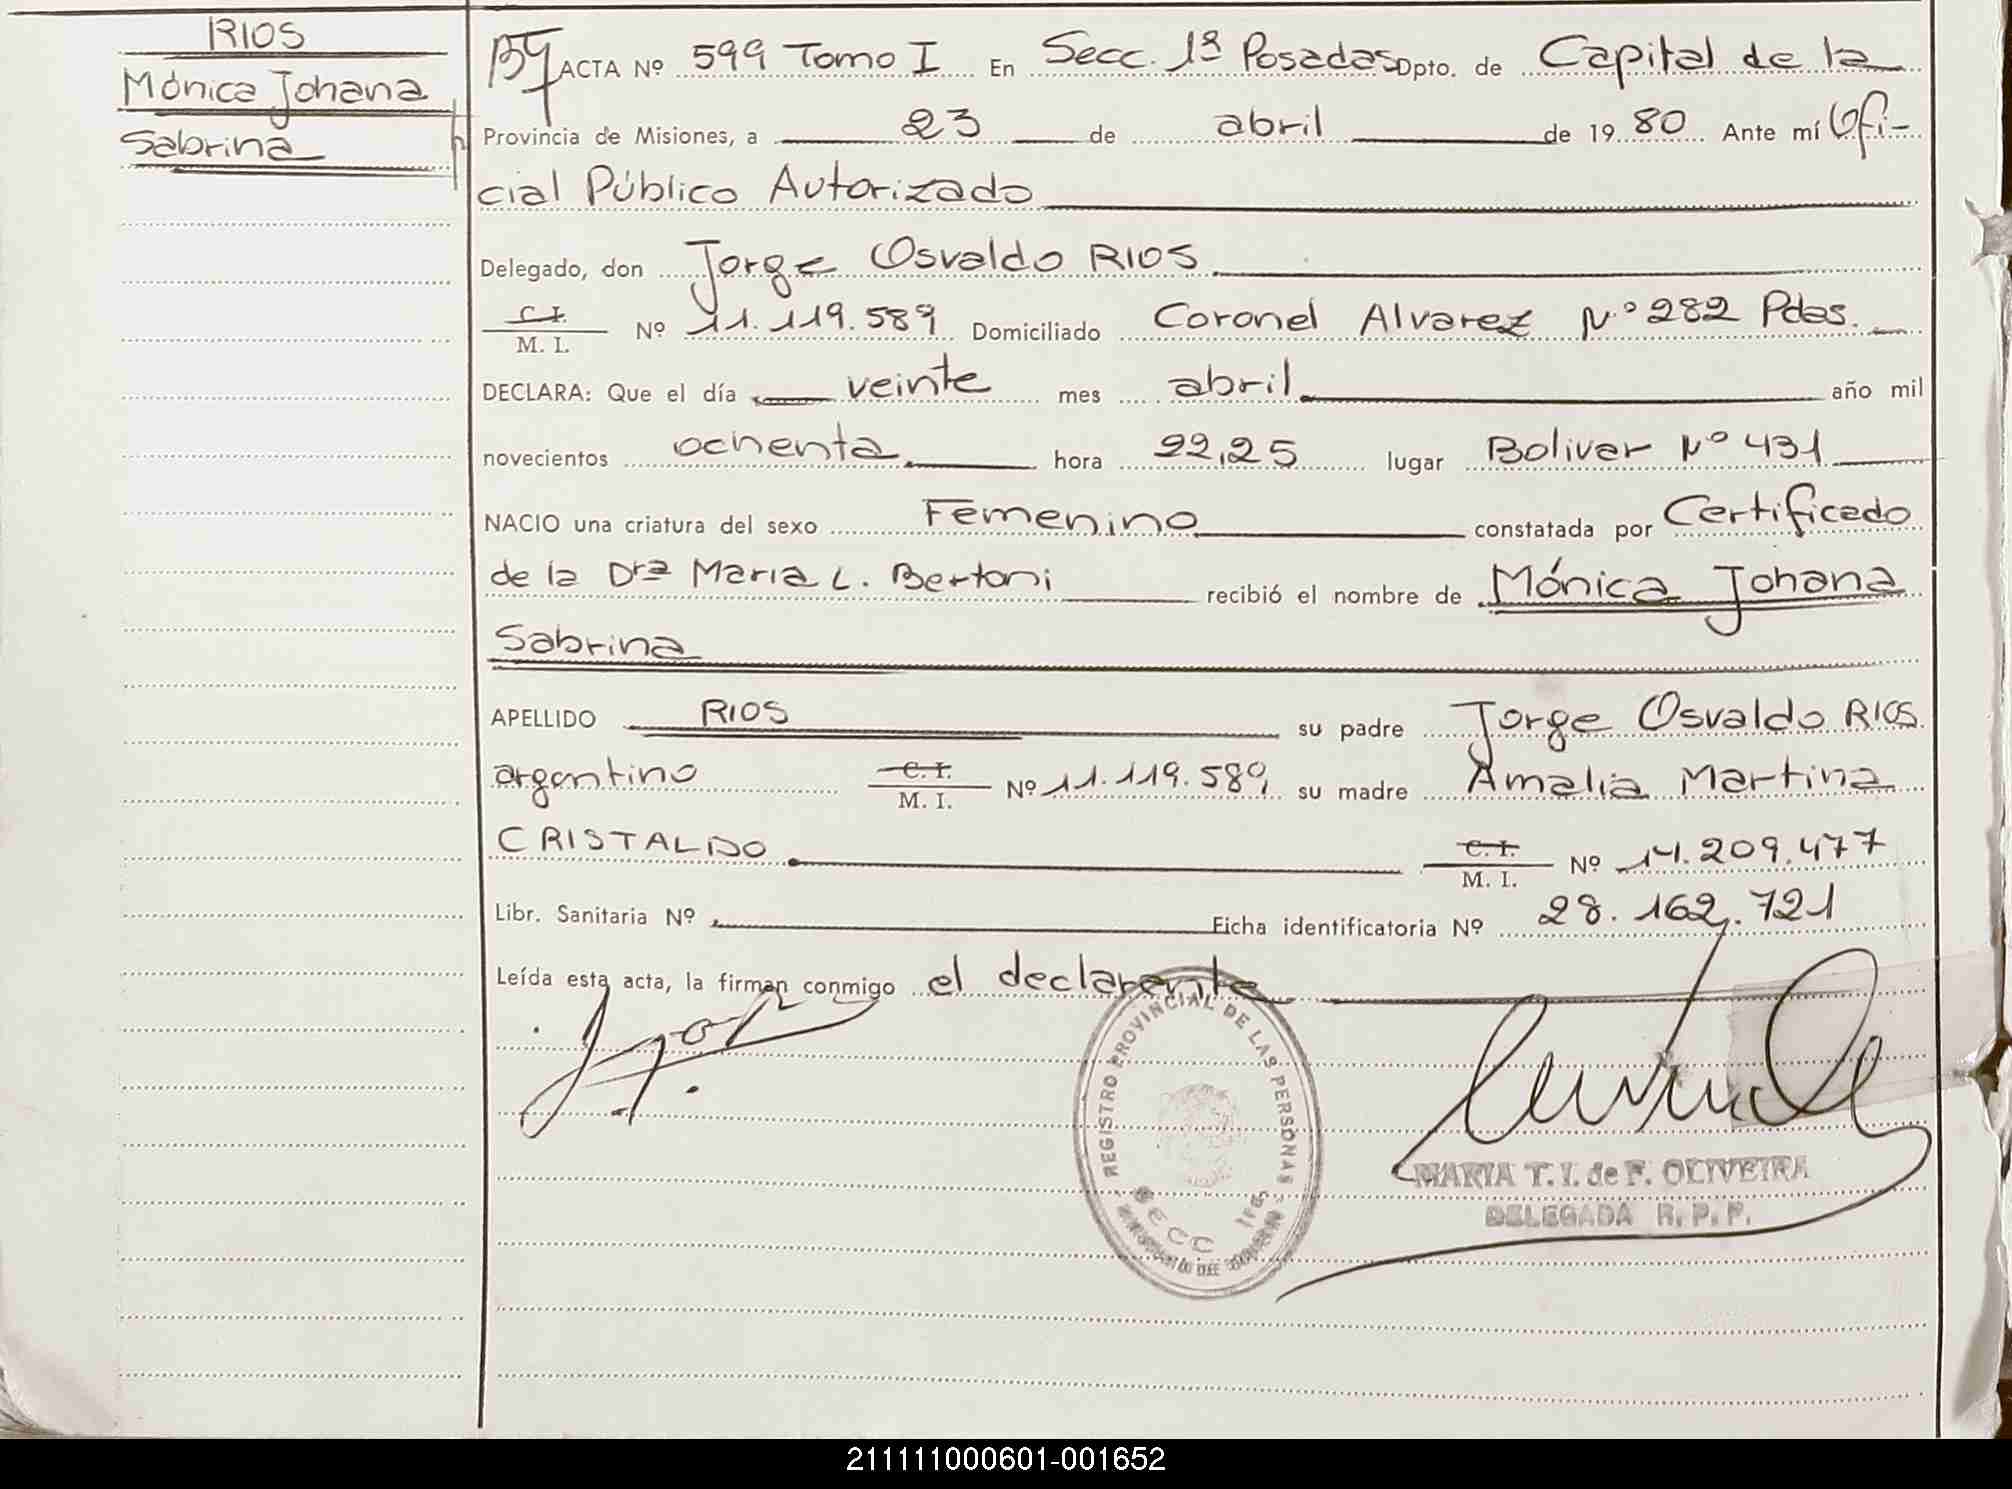 RIOS
Mónica Johana
Sabrina
ACTA Nº 599 Tomo I En Secc. 1ª Posadas Dpto. de Capital de la
Provincia de Misiones, a 23 de abril de 1980 Ante mí Ofi-
cial Público Autorizado
Delegado, don Jorge Osvaldo RIOS
C.I. M. I. Nº 11.119.589 Domiciliado Coronel Alvarez Nº 282 Pdas.
DECLARA: Que el día veinte mes abril año mil
novecientos ochenta hora 22,25 lugar Bolivar Nº 431
NACIO una criatura del sexo Femenino constatada por Certificado
de la Drª Maria L. Bertoni recibió el nombre de Mónica Johana
Sabrina
APELLIDO RIOS su padre Jorge Osvaldo RIOS
argentino C.I. M. I. Nº 11.119.589, su madre Amalia Martina
CRISTALDO C.I. M. I. Nº 14.209.477
Libr. Sanitaria Nº Ficha identificatoria Nº 28.162.721
Leída esta acta, la firman conmigo el declarante
REGISTRO PROVINCIAL DE LAS PERSONAS
SECC 1ra
MARIA T. I. de F. OLIVEIRA
DELEGADA R. P. P.
211111000601-001652